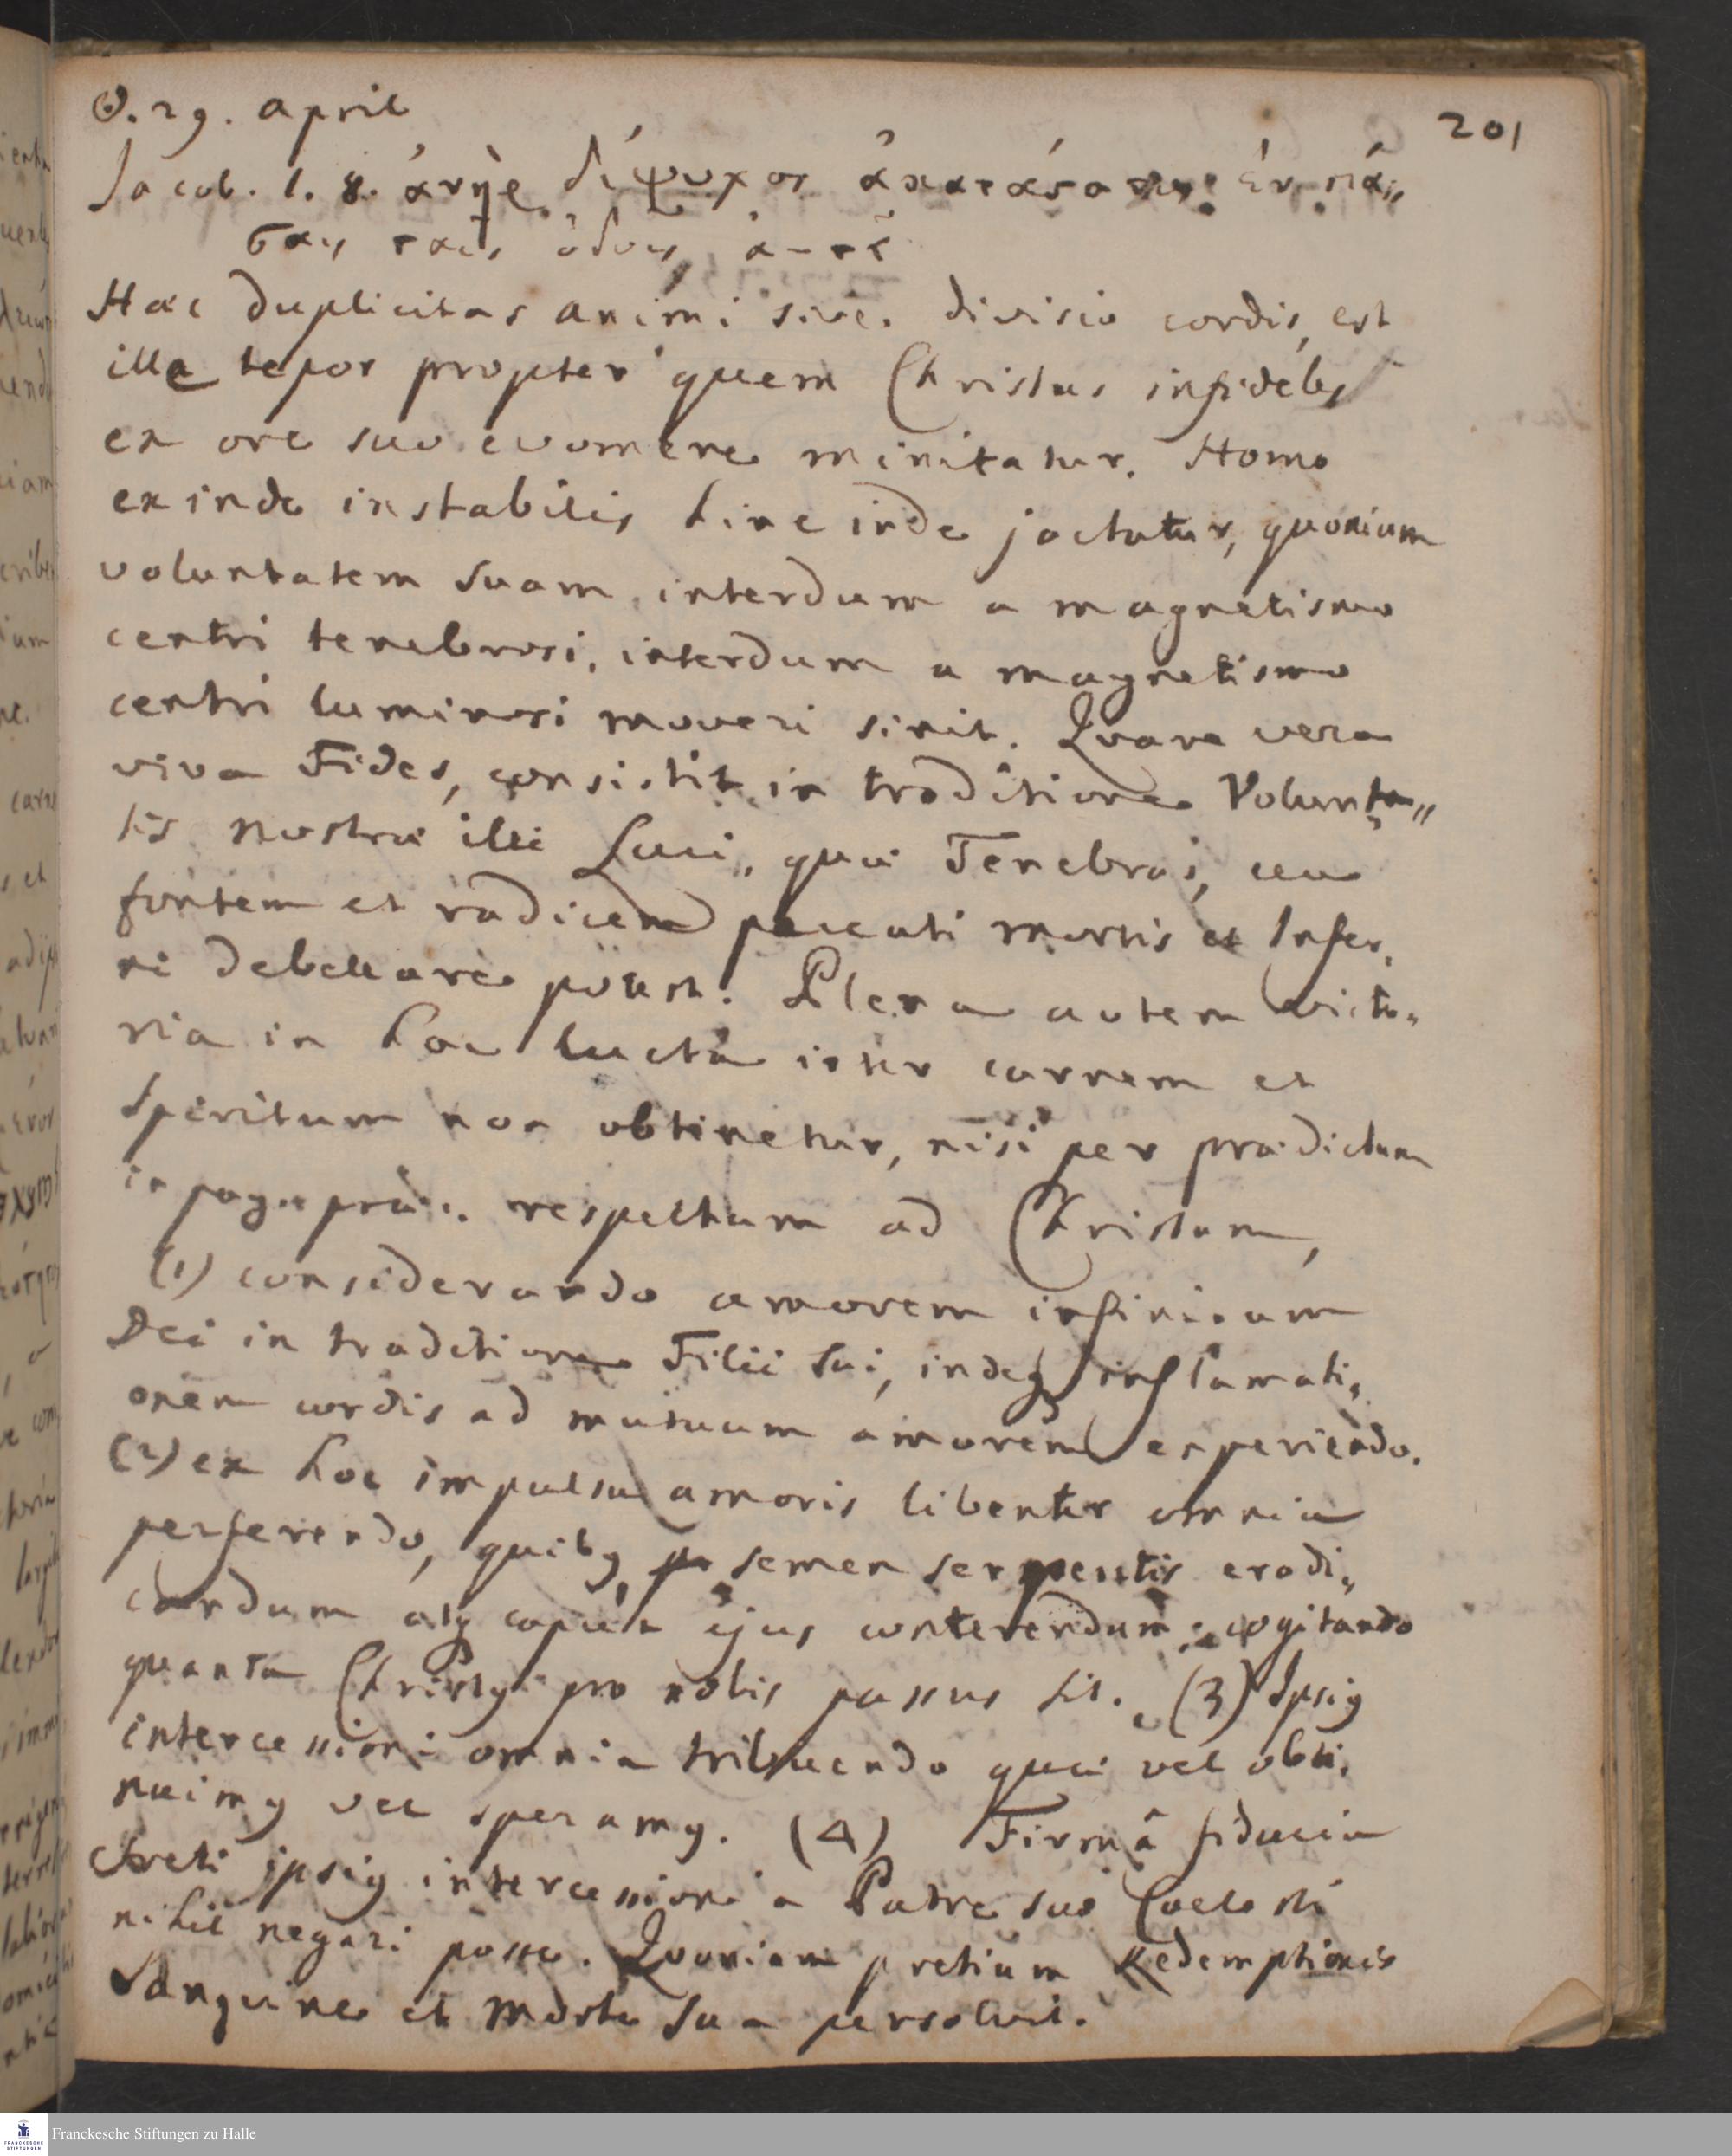 ☉. 29. april
201
Jacob. 1. 8. ἀνὴρ δίψυχος ἀκατάςατος ἐν πά„
σαις ταῖς ὁδοῖς ἀ-τȣ͂
Hæc duplicitas animi sive divisio cordis, est
ille tepor propter quem Christus infideles
ex ore suo evomere minitatur. Homo
exinde instabilis hinc inde jactatur, quoniam
voluntatem suam interdum a magnetismo
centri tenebrosi, interdum a magnetismo
centri luminosi moveri sinit. Qvare vera
viva Fides, consistit in traditione Volunta„
tis nostræ illi Luci, quæ Tenebras, ceu
fontem et radicem peccati mortis et Infer,
ni debellare potest. Plena autem victo,
ria in hac lucta inter carnem et
Spiritum non obtinetur, nisi per prædictum
in pag. præc. respectum ad Christum,
(1) considerando amorem infinitum
Dei in traditione Filii sui, indeq inflamati,
onem cordis ad mutuum amorem experiendo.
(2) ex hoc impulsu amoris libenter omnia
perferendo, quibq semen serpentis eradi„
candum atq caput ejus conterendum; cogitando
quanta Christq pro nobis passus sit. (3) Ipsiq
intercessioni omnia tribuendo quæ vel obti,
nuimq vel speramq. (4) Firmâ fiducia
freti ipsiq intercessioni a Patre suo Coelesti
nihil negari posse. Qvoniam pretium Redemptionis
Sanguine et Morte Sua persolvit.
Franckesche Stiftungen zu Halle